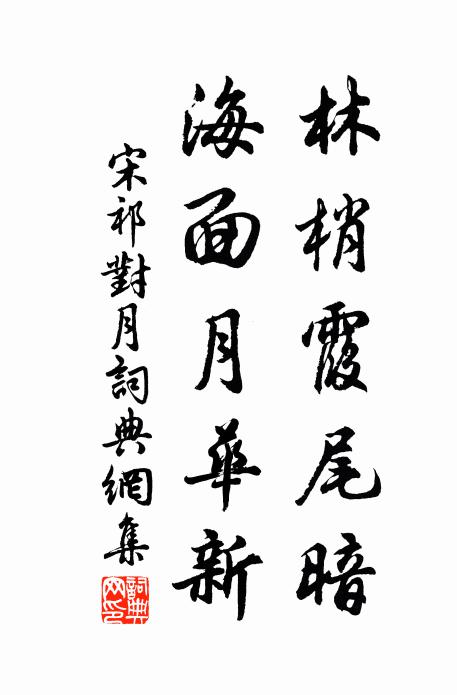 林梢霞尾暗
海面月華新
宋祁對月詞典網集
詞典网印